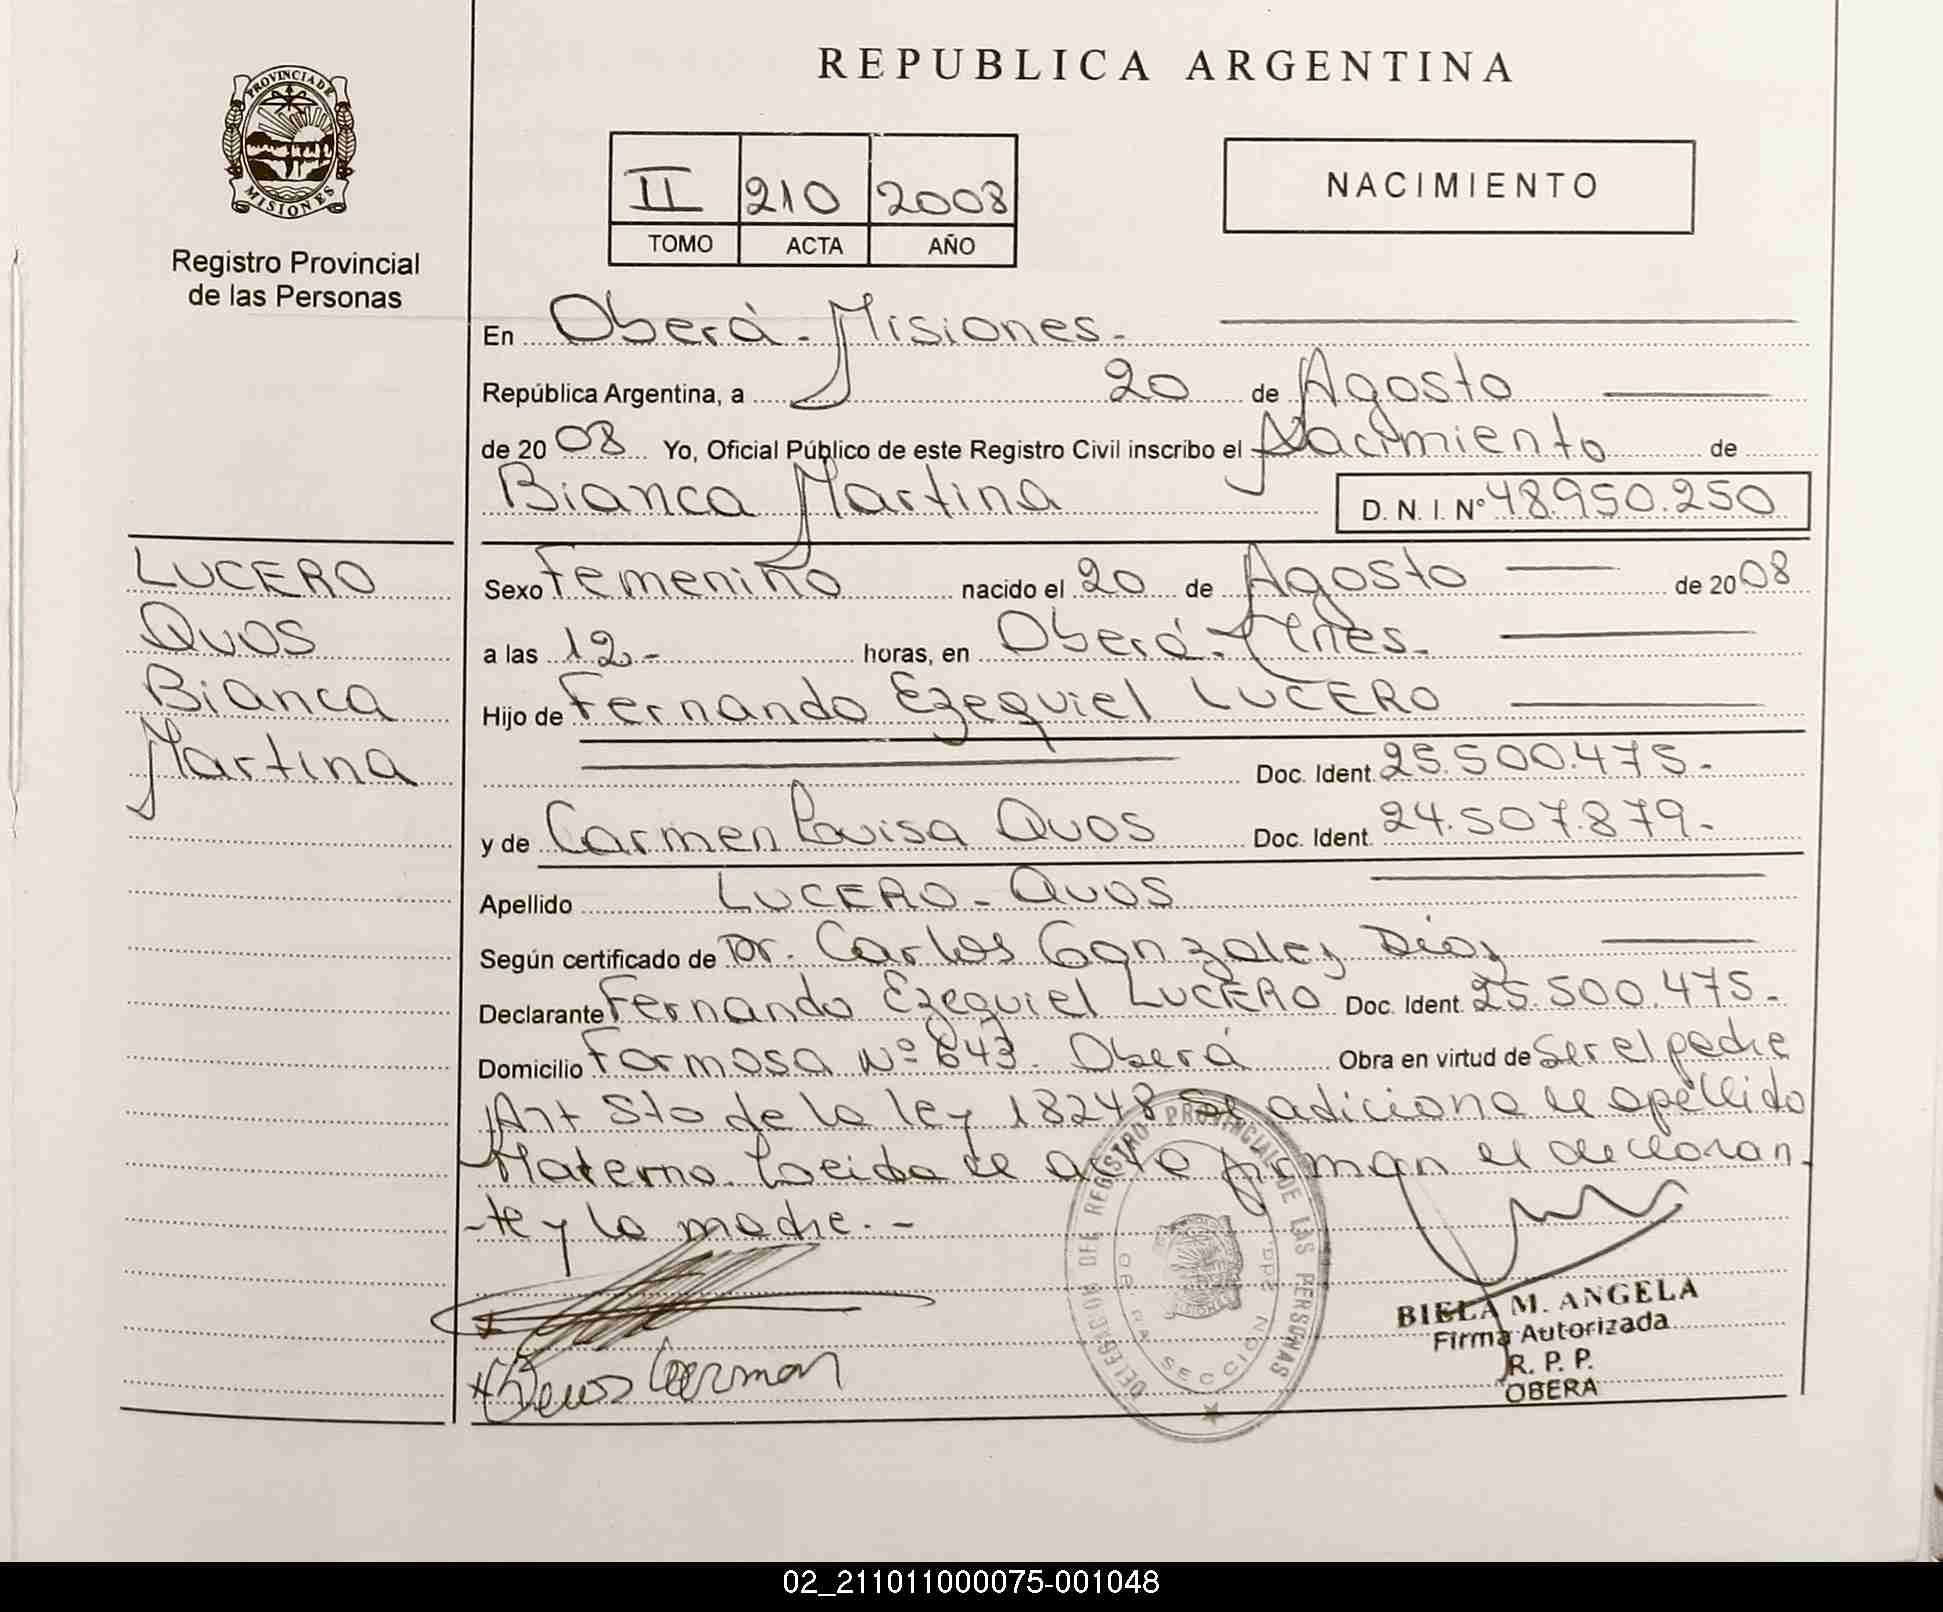 REPUBLICA ARGENTINA
PROVINCIA DE
MISIONES
Registro Provincial
de las Personas
II 210 2008
TOMO ACTA AÑO
NACIMIENTO
En Oberá - Misiones.
República Argentina, a 20 de Agosto
de 2008 Yo, Oficial Público de este Registro Civil inscribo el Nacimiento de
Bianca Martina D. N. I. Nº 48.950.250
LUCERO
QUOS
Bianca
Martina
Sexo Femenino nacido el 20 de Agosto de 2008
a las 12 - horas, en Oberá - Mnes.
Hijo de Fernando Ezequiel LUCERO
Doc. Ident. 25.500.475.
y de Carmen Luisa QUOS Doc. Ident. 24.507.879.
Apellido LUCERO - QUOS
Según certificado de Dr. Carlos Gonzalez Diaz
Declarante Fernando Ezequiel LUCERO Doc. Ident. 25.500.475.
Domicilio Formosa Nº 643. Oberá Obra en virtud de Ser el padre
Art 5to de la ley 18248 se adiciona el apellido
Materno. Leida el acta firman el declaran
-te y la madre. -
DELEGACION DEL REGISTRO PROVINCIAL DE LAS PERSONAS
OBERA SECCION 2da.
BIELA M. ANGELA
Firma Autorizada
R. P. P.
OBERA
02_211011000075-001048